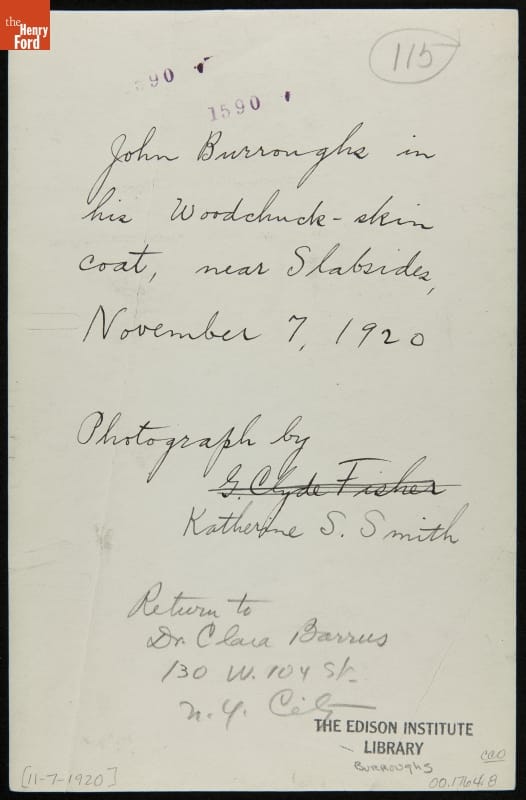 the
Henry
Ford
115
590
1590
John Burroughs in
his Woodchuck-skin
coat, near Slabsides,
November 7, 1920
Photograph by
G. Clyde Fisher
Katherine S. Smith
Return to
Dr. Clara Barrus
130 W. 104 St.
N.Y. City
THE EDISON INSTITUTE
LIBRARY
BURROUGHS
[11-7-1920]
00.1764.8